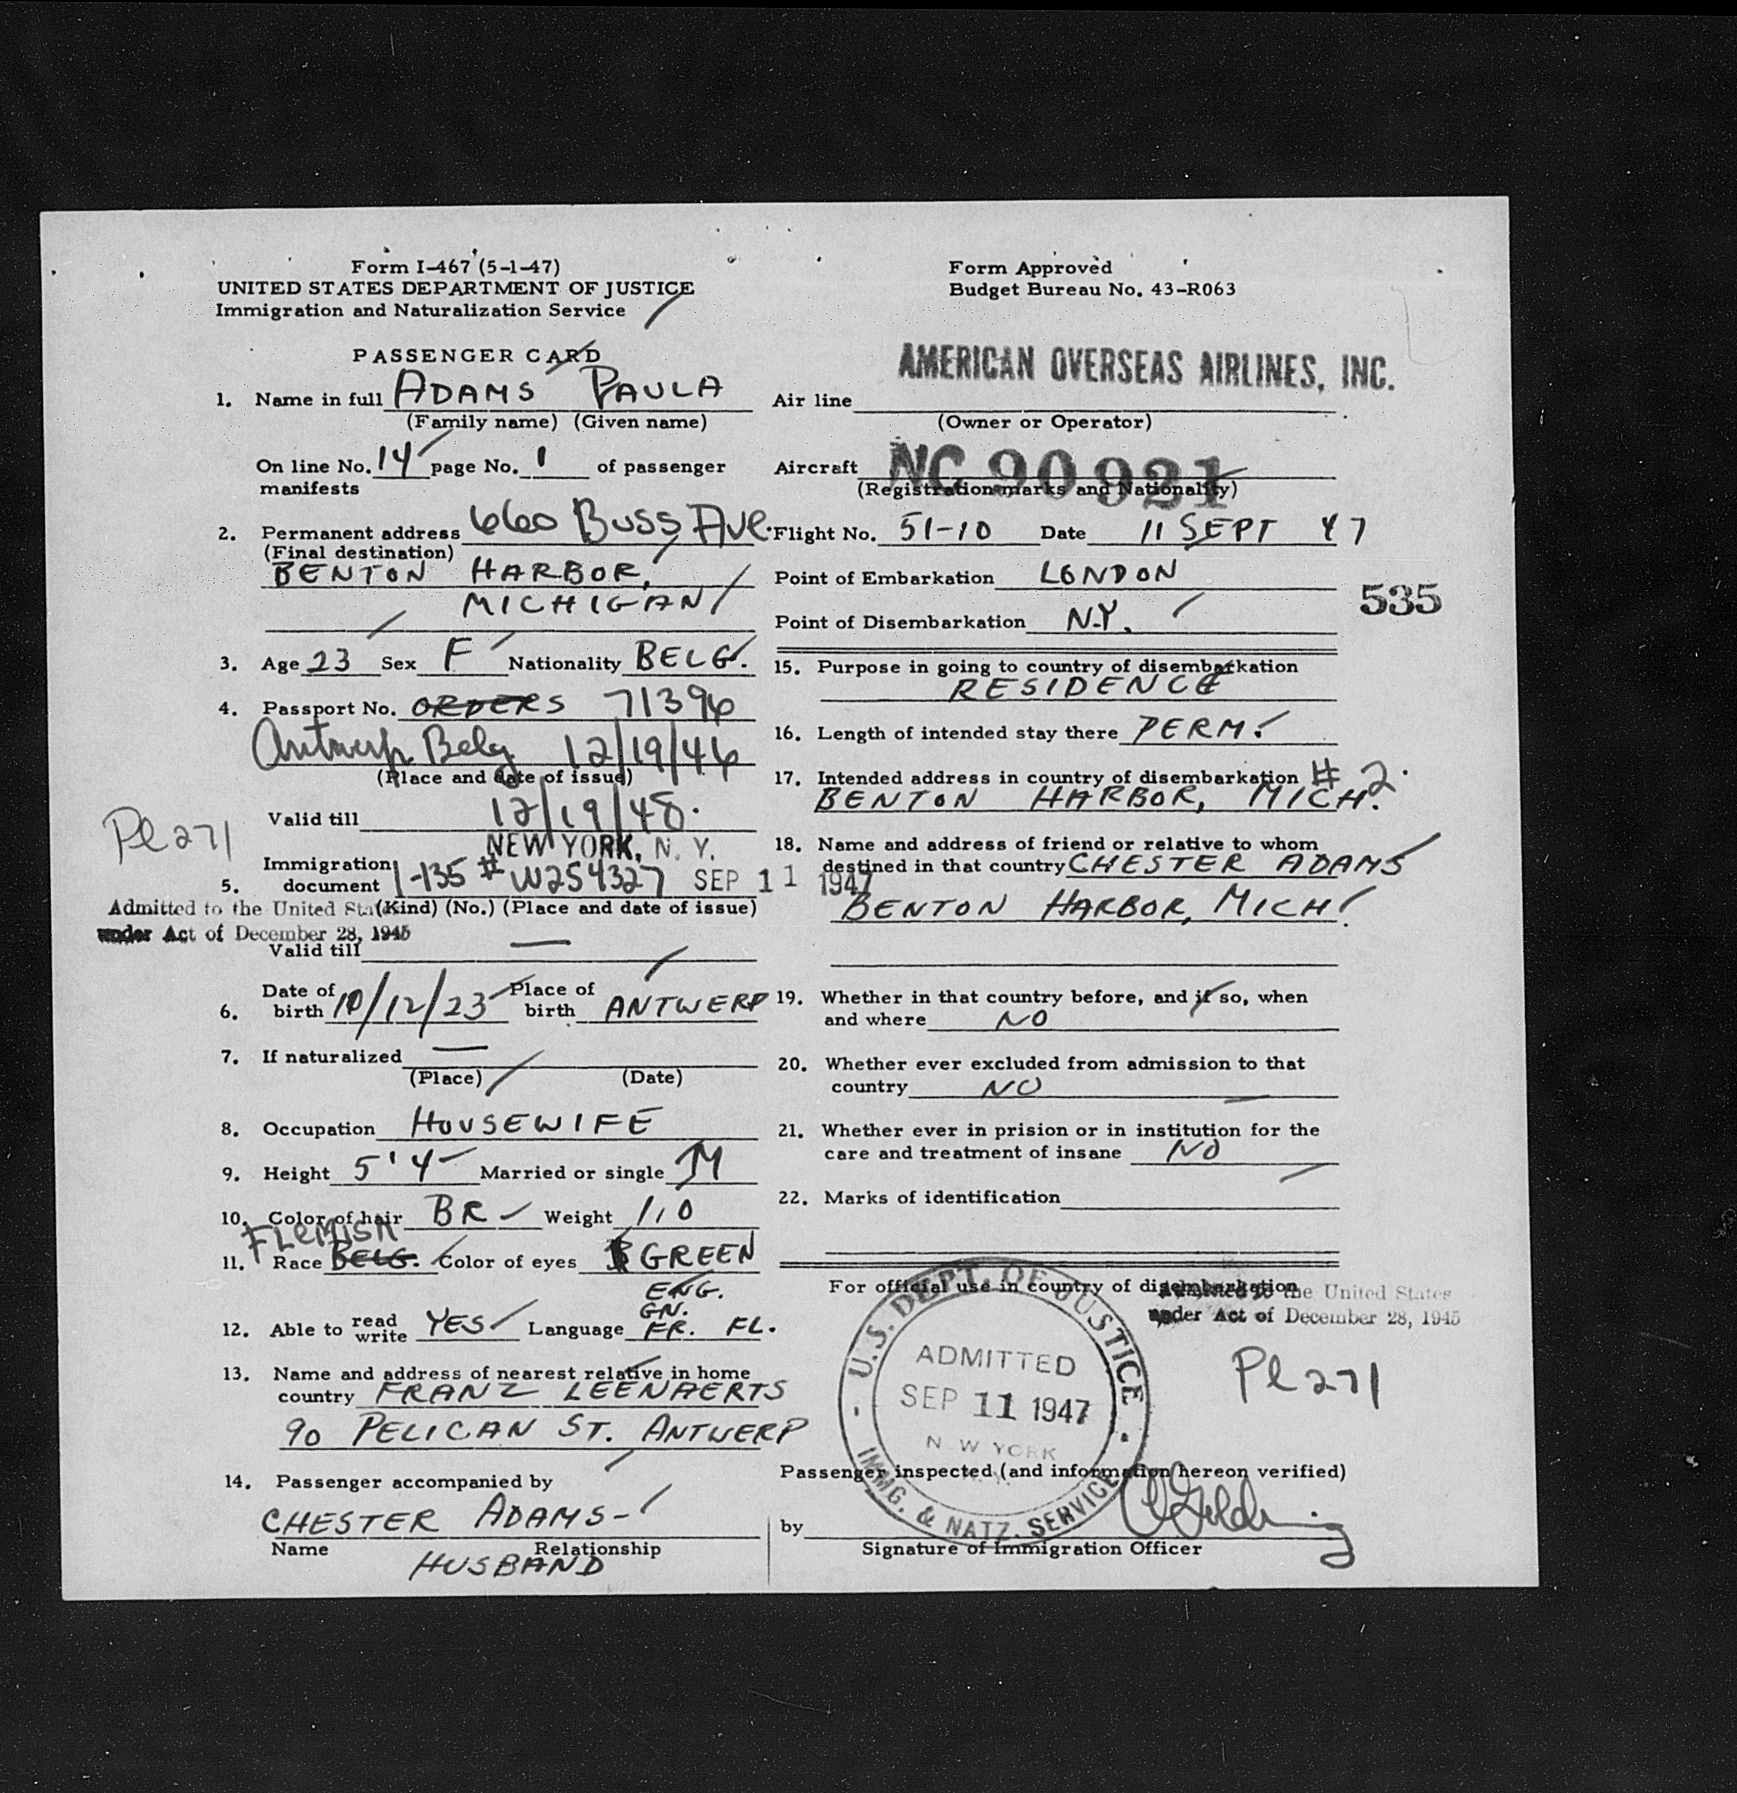 Form I-467 (5-1-47)
UNITED STATES DEPARTMENT OF JUSTICE
Immigration and Naturalization Service
Form Approved
Budget Bureau No. 43-R063
PASSENGER CARD
1. Name in full ADAMS PAULA
(Family name) (Given name)
On line No. 14 page No. 1 of passenger
manifests
2. Permanent address 660 BUSS AVE.
(Final destination)
BENTON HARBOR,
MICHIGAN
3. Age 23 Sex F Nationality BELG.
4. Passport No. ORDERS 71396
Antwerp Belg 12/19/46
(Place and date of issue)
Valid till 12/19/48.
Pl 271
NEW YORK, N. Y.
Immigration
5. document I-135 # W254327 SEP 11 1947
(Kind) (No.) (Place and date of issue)
Admitted to the United States
under Act of December 28, 1945
Valid till —
6. Date of birth 10/12/23 Place of birth ANTWERP
7. If naturalized —
(Place) (Date)
8. Occupation HOUSEWIFE
9. Height 5'4 Married or single M
10. Color of hair BR Weight 110
FLEMISH
11. Race BELG. Color of eyes GREEN
ENG.
GN.
12. Able to read write YES Language FR. FL.
13. Name and address of nearest relative in home
country FRANZ LEENAERTS
90 PELICAN ST. ANTWERP
14. Passenger accompanied by
CHESTER ADAMS-
Name Relationship
HUSBAND
AMERICAN OVERSEAS AIRLINES, INC.
Air line
(Owner or Operator)
Aircraft NC 90921
(Registration marks and Nationality)
Flight No. 51-10 Date 11 SEPT 47
Point of Embarkation LONDON
535
Point of Disembarkation N.Y.
15. Purpose in going to country of disembarkation
RESIDENCE
16. Length of intended stay there PERM.
17. Intended address in country of disembarkation # 2.
BENTON HARBOR, MICH.
18. Name and address of friend or relative to whom
destined in that country CHESTER ADAMS
BENTON HARBOR, MICH.
19. Whether in that country before, and if so, when
and where NO
20. Whether ever excluded from admission to that
country NO
21. Whether ever in prision or in institution for the
care and treatment of insane NO
22. Marks of identification
For official use in country of disembarkation
Admitted to the United States
under Act of December 28, 1945
Pl 271
U.S. DEPT. OF JUSTICE
ADMITTED
SEP 11 1947
N W YORK
IMMG. & NATZ. SERVICE
Passenger inspected (and information hereon verified)
by
Signature of Immigration Officer